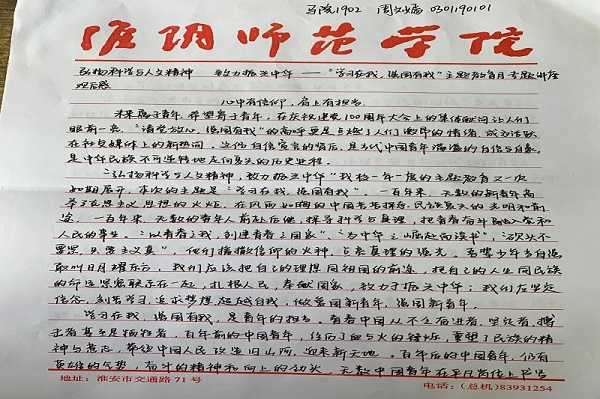 马院1902 周文嫣 0301190101
淮阴师范学院
弘扬科学与人文精神 致力振兴中华——“学习在我,强国有我”主题教育月专题讲座
观后感
心中有信仰,肩上有担当
未来属于青年,希望寄予青年,在庆祝建党100周年大会上的集体献词让人们
眼前一亮。“请党放心,强国有我”的高呼更是点燃了人们激昂的情绪,成立活跃
在社交媒体上的新热词。这份自信宣言的背后,是当代中国青年满溢的自信与自豪,
是中华民族不可逆转地走向复兴的历史进程。
“弘扬科学与人文精神,致力振兴中华”我校一年一度的主题教育又一次
如期展开,本次的主题是“学习在我,强国有我”。一百年来,无数的新青年高
举马克思主义思想的火炬,在风雨如晦的中国苦苦探寻民族复兴的光明和前
途。一百年来,无数的青年人前赴后继,探寻科学与真理,把青春奋斗融入党和
人民的事业。“以青春之我,创建青春之国家”、“为中华之崛起而读书”,“砍头不
要紧,只要主义真”,他们播撒信仰的火种,点亮真理的强光。吾辈少年当自强,
敢叫日月耀东方,我们应该把自己的理想同祖国的前途,把自己的人生同民族
的命运紧密联系在一起,扎根人民,奉献国家,致力于振兴中华;我们应坚定
信念,刻苦学习,追求梦想超越自我,做爱国新青年,强国新青年。
学习在我,强国有我,是青年的担当。青春中国从不乏奋进者,坚定者,搏
击者甚至是牺牲者,百年前的中国青年,经历了血与火的锤炼,重塑了民族的精
神与意志,带领中国人民改造旧山河,迎来新天地。百年后的中国青年,仍有
英雄的气势,奋斗的精神和向上的劲头,无数中国青年在平凡岗位上书写
地址:淮安市交通路71号
电话:(总机)83931254